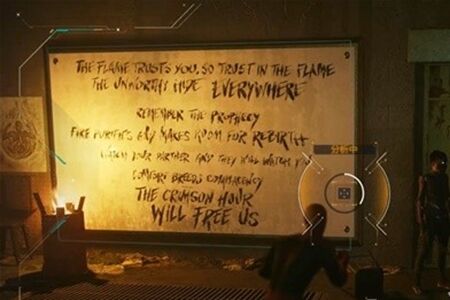 THE FLAME TRUSTS YOU, SO TRUST IN THE FLAME
THE UNWORTHY HIDE EVERYWHERE
REMEMBER THE PROPHECY
FIRE PURIFIES AND MAKES ROOM FOR REBIRTH
WATCH YOUR BROTHER AND THEY WILL WATCH YOU
COMFORT BREEDS COMPLACENCY
THE CRIMSON HOUR
WILL FREE US
分析中